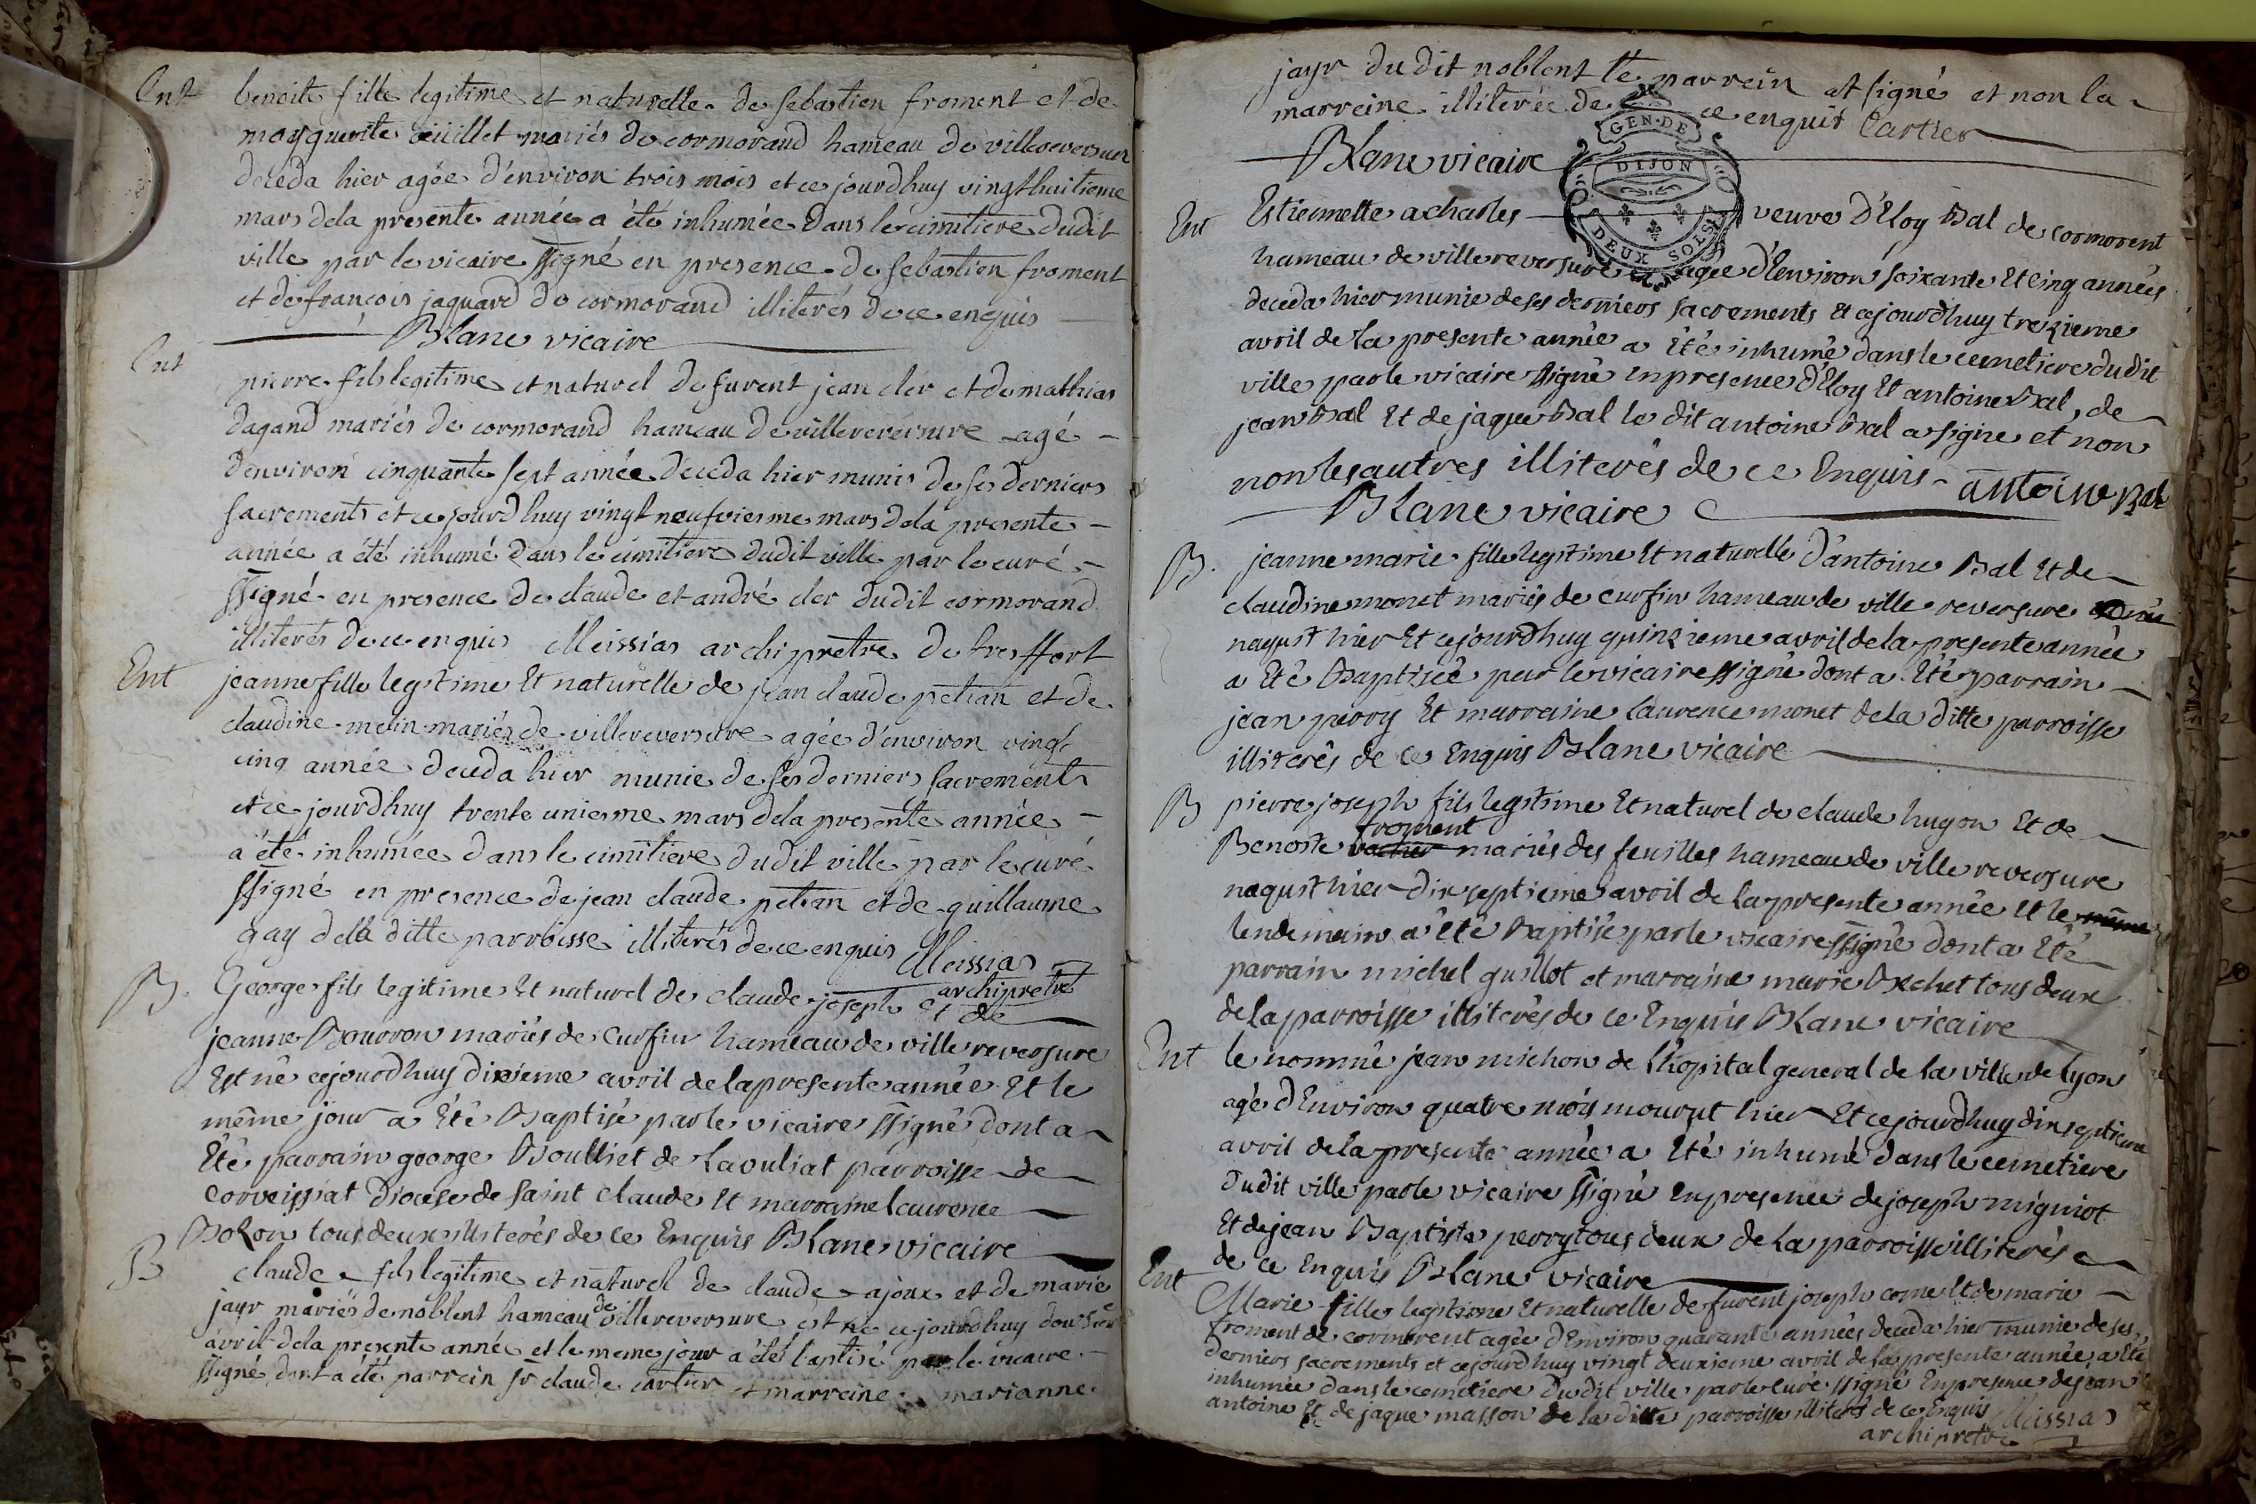 Ent benoite fille legitime et naturelle de sebastien froment et de
marguerite mariés de cormorand hameau de villereversure
deceda hier agée d'environ trois mois et ce jourdhuy vingt huitieme
mars dela presente année a été inhumée dans le cimitiere dudit
ville par le vicaire ssigné en presence de sebastien froment
et de françois jaquard de cormorand illiterés de ce enquis
Blanc vicaire
Ent pierre fils legitime et naturel de furent jean cler et de mathias
dagand mariés de cormorand hameau de villereversure agé
d'environ cinquante sept année deceda hier munis de ses derniers
sacrements et ce jourdhuy vingt neufviesme mars dela presente
année a été inhumé dans le cimitiere dudit ville par le curé
ssigné en presence de claude et andré cler dudit cormorand
illiterés de ce enquis Meissias archiprêtre de treffort
Ent jeanne fille legitime Et naturelle de jean claude pelian et de
claudine melin mariés de villereversure agée d'environ vingt
cinq année deceda hier munie de ses derniers sacrements
et ce jourdhuy trente uniesme mars dela presente année
a été inhumée dans le cimitiere dudit ville par le curé
ssigné en presence de jean claude pelian et de guillaume
gay de la ditte parroisse illiterés de ce enquis Meissias
archiprêtre
B. George fils legitime Et naturel de claude joseph et de
jeanne Bourron mariés de Curfin hameau de ville reversure
Est né cejourdhuy dixieme avril de la presente année Et le
même jour a Eté Baptisé par le vicaire ssigné dont a
Eté parrain george Boulliet de Laouliat parroisse de
Corveissiat Diocese de saint claude Et marraine laurence
Bolon tous deux illiterés de ce Enquis Blanc vicaire
B claude fils legitime et naturel de claude ajoux et de marie
jayr mariés de noblent hameau de villereversure est né ce jourdhuy
avril dela presente année et le meme jour a été baptisé par le vicaire
ssigné dont a été parrein sr claude cartier et marreine marianne
jayr du dit noblent le parrein at signé et non la
marreine illiterée de ce enquit Cartier
Blanc vicaire
GEN. DE
DIJON
DEUX SOLS
Ent Estiennette acharles veuve d'Eloy Bal de cormorent
hameau de ville reversure agée d'Environ soixante Et Cinq années
deceda hier munie de ses derniers sacrements Et cejourdhuy trezieme
avril de la presente année a Eté inhumé dans le cemetiere du dit
ville par le vicaire ssigné En presence d'Eloy Et antoine Bal, de
jean Bal Et de jaque Bal le dit antoine Bal a signe et non
non les autres illiterés de ce Enquis antoine Bal
Blanc vicaire
B. jeanne marie fille legitime Et naturelle d'antoine Bal Et de
claudine monet mariés de Curfin hameau de ville reversure
naquit hier Et cejourdhuy quinzieme avril de la presente année
a Eté Baptisée par le vicaire ssigné dont a Eté parrain
jean perry Et marraine laurence monet de la ditte parroisse
illiterés de ce Enquis Blanc vicaire
B pierre joseph fils legitime Et naturel de claude hugon Et de
froment
Benoite mariés des feuilles hameau de ville reversure
naquit hier dixseptieme avril de la presente année Et le même
lendemain a Eté Baptisé par le vicaire ssigné dont a Eté
parrain michel guillot et marraine marie Bechet tous deux
de la parroisse illiterés de ce Enquis Blanc vicaire
Ent le nommé jean michon de l'hopital general de la ville de lyon
agé d'Environ quatre mois mourut hier Et cejourdhuy dixseptieme
avril de la presente année a Eté inhumé dans le cemetiere
Dudit ville par le vicaire ssigné En presence de joseph migniot
Et de jean Baptiste perry tous deux de la parroisse illiterés
de ce Enquis Blanc vicaire
Ent Marie fille legitime Et naturelle de furent joseph come Et de marie
froment de cormorent agée d'Environ quarante années deceda hier munie de ses
derniers sacrements et cejourdhuy vingt deuxieme avril de la presente année a Eté
inhumée dans le cemetiere du dit ville par le curé ssigné En presence de jean
antoine Et de jaque masson de la ditte parroisse illiterés de ce Enquis Meissias
archiprêtre